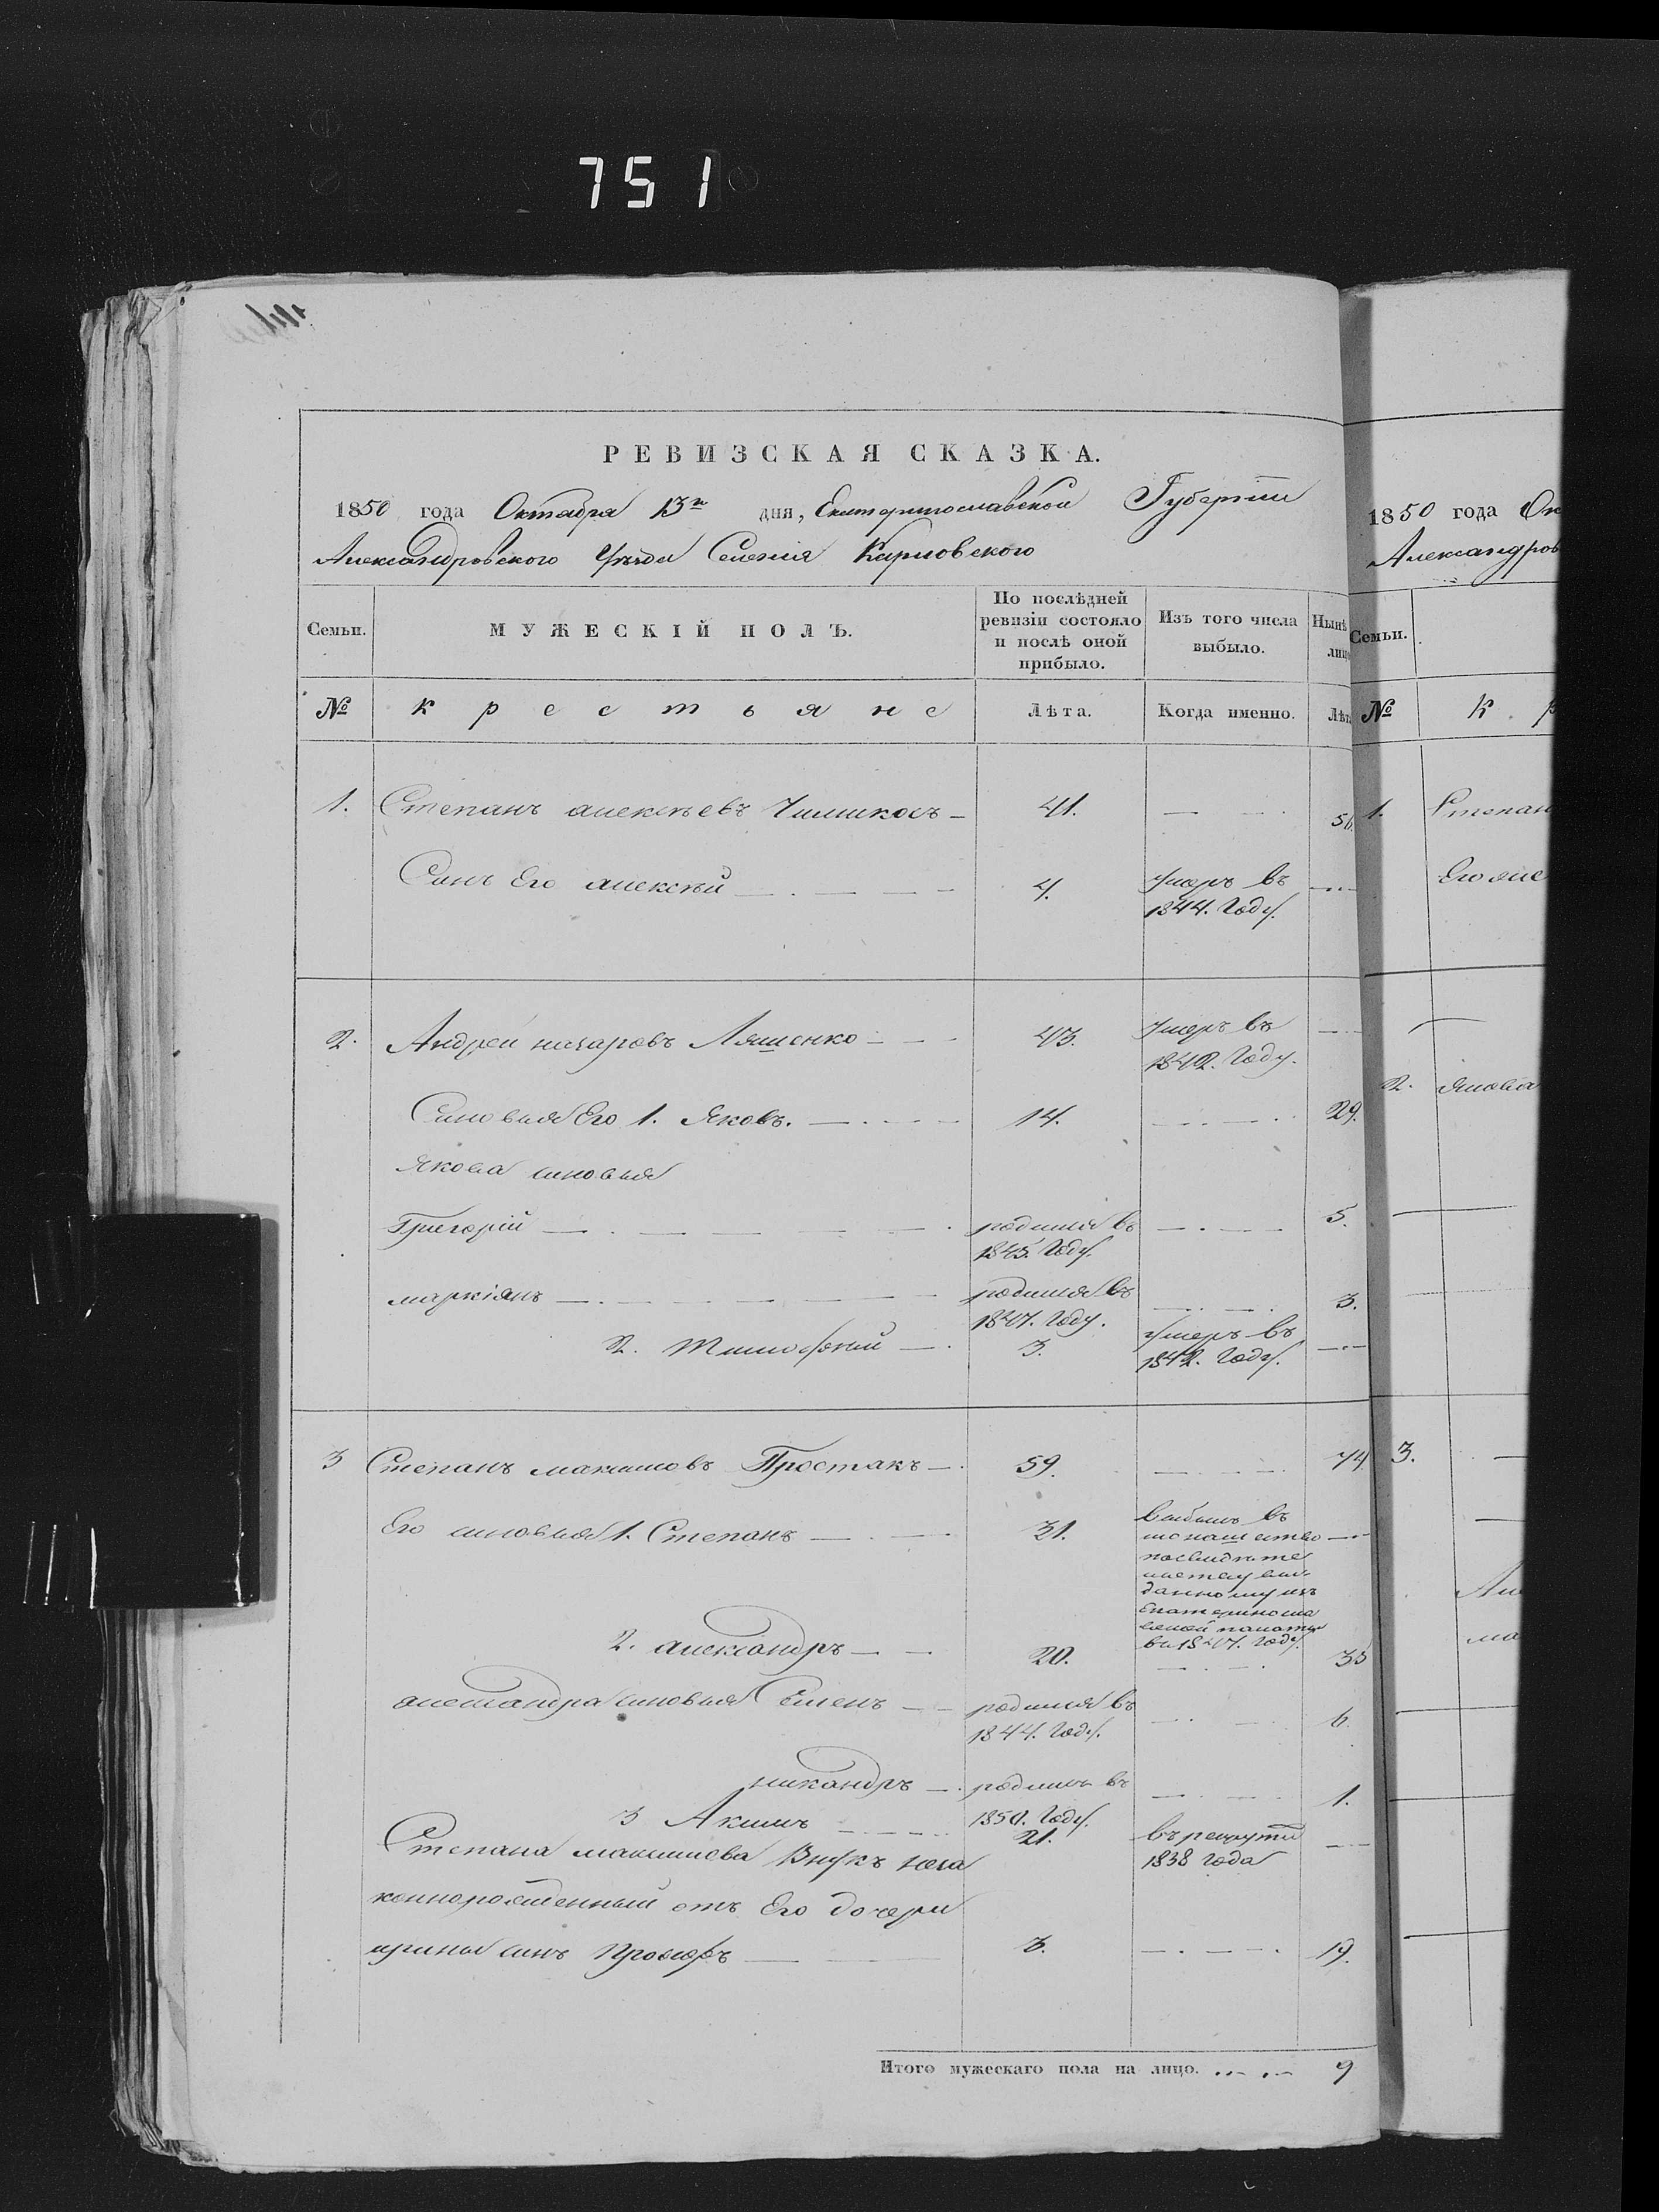 751
РЕВИЗСКАЯ СКАЗКА.
1850 года Октабра 13го дня, Екатеринославской Губернии
Александровского Уезда Селения Карповского
Семьи. МУЖЕСКІЙ ПОЛЪ. По послѣдней ревизіи состояло и послѣ оной прибыло. Изъ того числа выбыло. Нынѣ
№ крестьяне Лѣта. Когда именно. Лѣт
1. Степанъ алексѣевъ 41. 56.
Синъ Его алексѣй 4. Умеръ въ
1844. Году.
2. Андрей назаровъ Ляшенко 43. Умеръ въ
1842. Году.
Синовья Его 1. Яковъ. 14. 29.
Якова синовья
Григорій родился въ 5.
1845. Году.
маркіянъ родился въ 3.
1847. Году.
2. Тимофѣй 3. Умеръ въ
1842. Году.
3 Степанъ максимовъ Простакъ 59. 74
Его синовья 1. Степанъ 31. выбылъ въ
монашество
данному изъ
Екатеринославской палаты
въ 1847. Году.
2. александръ 20. 35
александра синовья Семенъ родился въ 6.
1844. Году.
никандръ родился въ 1.
1850. Году.
3 Акимъ 21. въ рекруты
1838 года
Степана максимова Внукъ неза
коннорожденный отъ Его дочери
ирины синъ 3. 19.
Итого мужескаго пола на лицо. 9
1850 года Ок
Александров
Семьи.
№ К р
1. Степан
Его же
2. Якова
3.